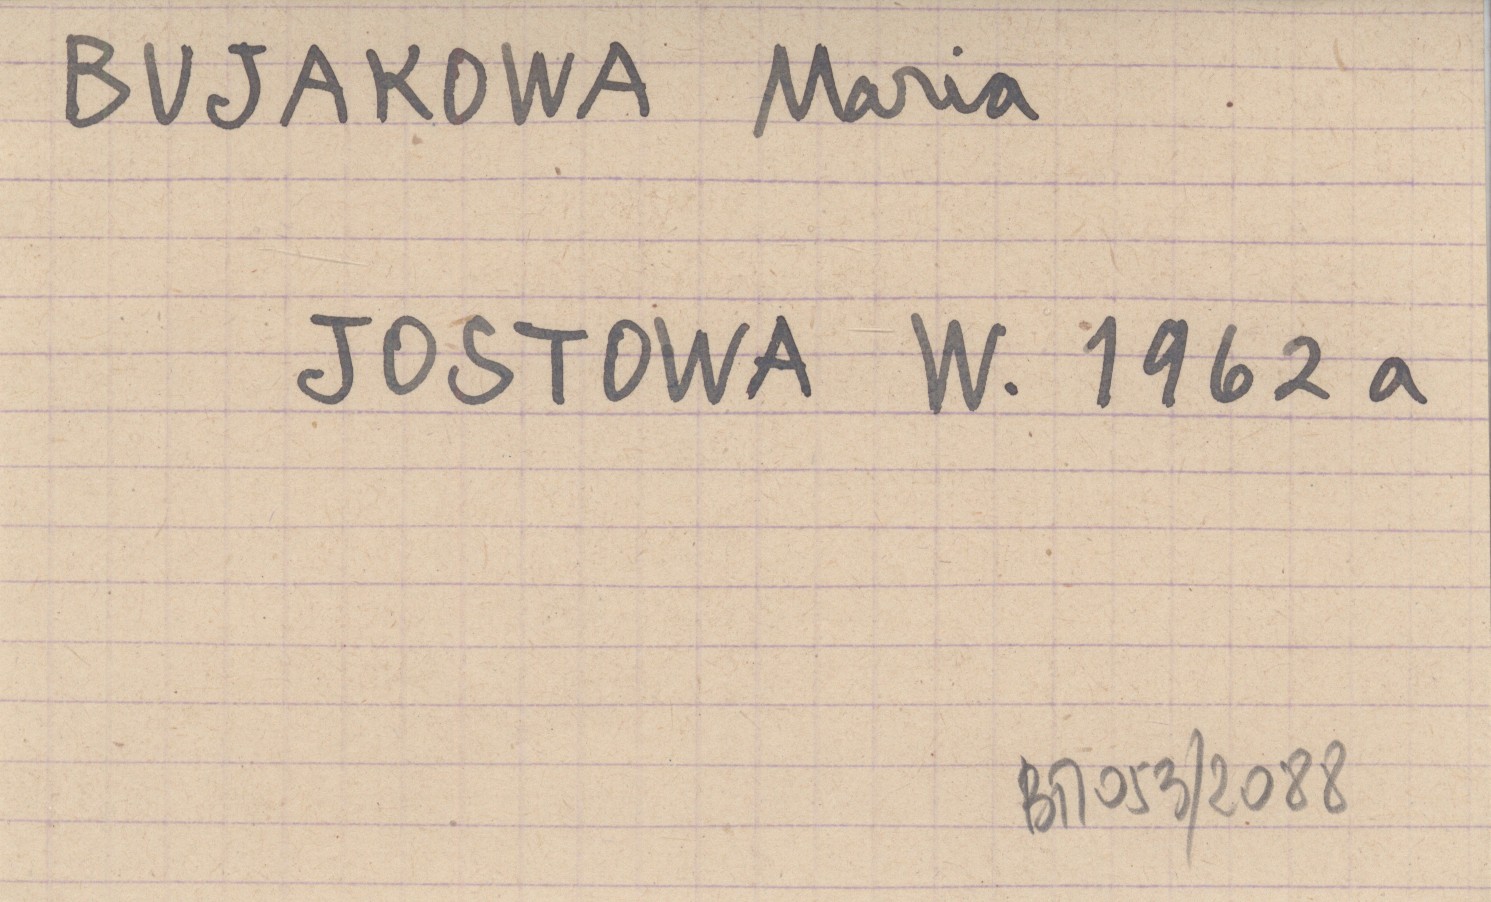 BUJAKOWA Maria
JOSTOWA W. 1962 a
BП053/2088